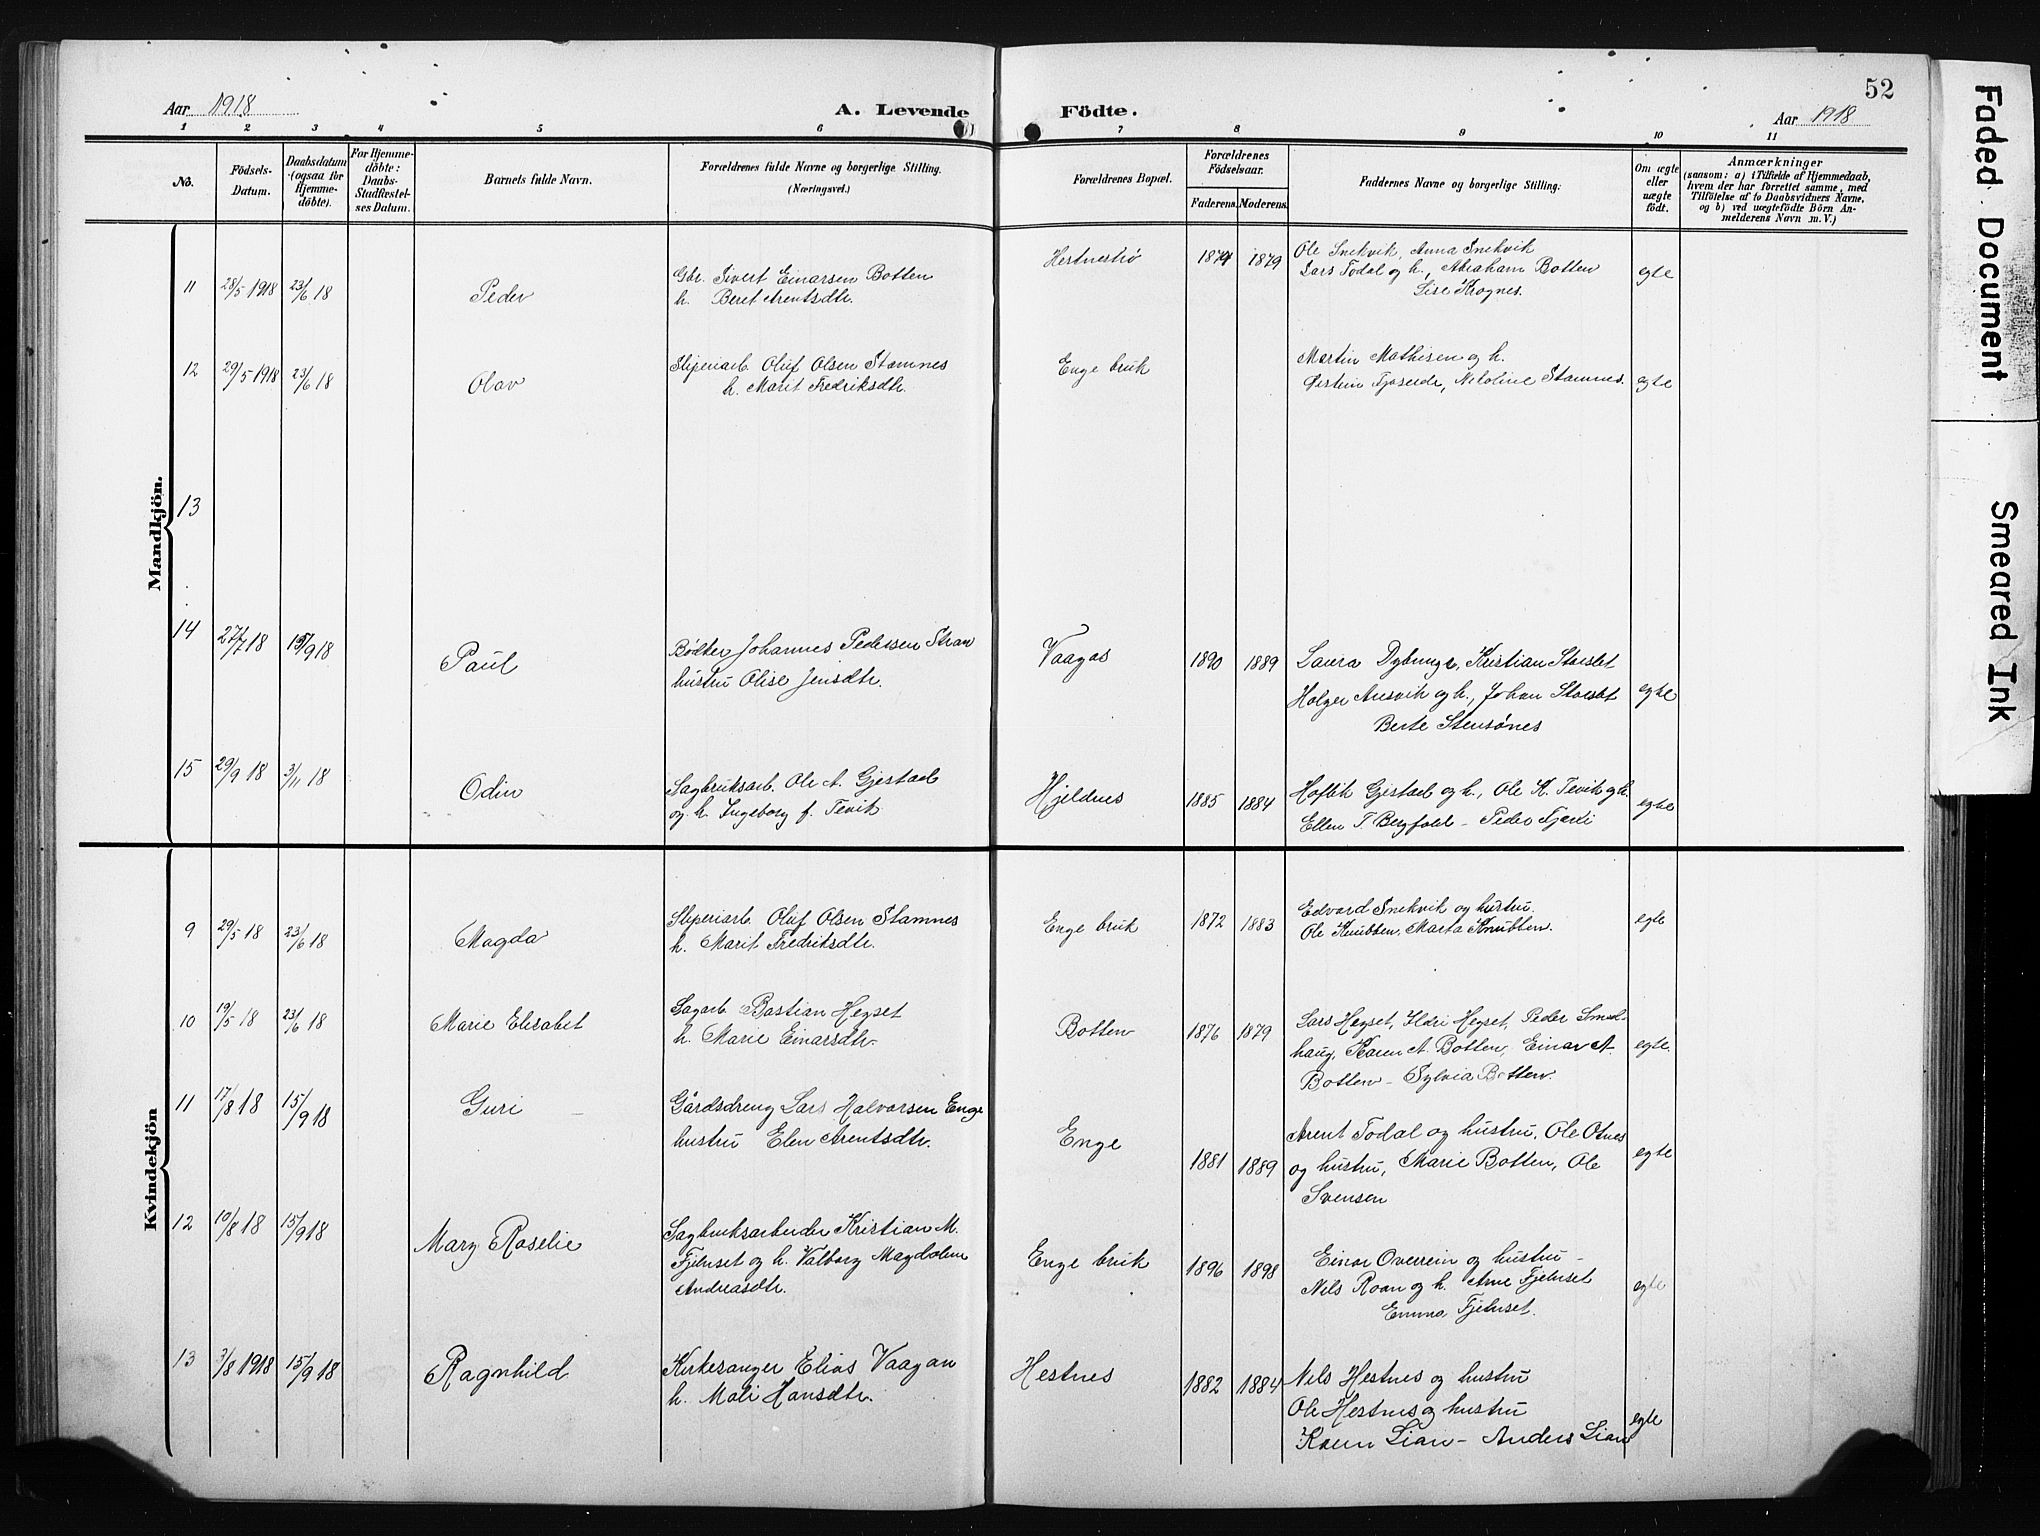 52
Aar 1918
A. Levende
Födte.
Aar 1918
1 2 3 4 5 6 7 8 9 10 11
No.
Födsels-Datum.
Daabsdatum (ogsaa for Hjemme-döbte).
For Hjemme-döbte: Daabs-Stadfæstel-ses Datum.
Barnets fulde Navn.
Forældrenes fulde Navne og borgerlige Stilling.
(Næringsvei.)
Forældrenes Bopæl.
Forældrenes Födselsaar.
Faderens. Moderens.
Faddernes Navne og borgerlige Stilling.
Om ægte eller uægte födt.
Anmærkninger
(saasom: a) i Tilfælde af Hjemmedaab,
hvem der har forrettet samme, med
Tilföielse af to Daabsvidners Navne,
og b) ved uægtefödte Börn An-
melderens Navn m. V.)
Mandkjön.
11 28/5 1918 23/6 18 Peder
Gbr. Sivert Einarsen Botten
h. Beret Arentsdtr.
Hestnestrø 1874 1879
Ole Snekvik, Anna Snekvik
Lars Todal og h., Abraham Botten
Lise Krognes.
egte
12 29/5 1918 23/6 18 Olav
Sliperiarb. Oluf Olsen Stamnes
h. Marit Fredriksdtr.
Enge bruk
Martin Mathisen og h.
Nikoline Stamnes.
egte
13
14 27/7 18 15/9 18 Paul
Bødker Johannes Pedersen Stran
hustru Olise Jensdtr.
Vaagos 1890 1889
Laura Kristian
Holger og h., Johan
Berte Stensønes
egte
15 29/9 18 3/11 18 Odin
Sagbruksarb. Ole A. Gjestad
og h. Ingeborg f. Tevik
Hjeldnes 1885 1884
Gjestad og h., Ole K. Tevik og h.
Ellen T. Peder
egte
Kvindekjön
9 29/5 18 23/6 18 Magda
Sliperiarb. Oluf Olsen Stamnes
h. Marit Fredriksdtr.
Enge bruk 1872 1883
Edvard Snekvik og hustru.
Ole Knubben, Marta Knubben.
egte
10 19/5 18 23/6 18 Marie Elisabet
Sagarb. Bastian Hegset
h. Marie Einarsdtr.
Botten 1876 1879
Lars Hegset, Ildri Hegset, Peder Smed-
haug, Karen A. Botten, Einar A.
Botten - Sylvia Botten.
egte.
11 17/8 18 15/9 18 Guri
Gårdsdreng Lars Halvorsen Enge
hustru Elen Arentsdtr.
Enge 1881 1889
Arent Todal og hustru, Ole Otnes
og hustru, Marie Botten, Ole
Svensen
egte
12 10/8 18 15/9 18 Mary Roselie
Sagbruksarbeider Kristian M.
Fjelnset og h. Valborg Magdalene
Andreasdtr.
Enge bruk 1896 1898
Einar Overrein og hustru -
Nils Roan og h. Arne Fjelnset
Emma Fjelnset.
egte
13 3/8 1918 15/9 18 Ragnhild
Kirkesanger Elias Vaagan
h. Mali Hansdtr.
Hestnes 1882 1884
Nils Hestnes og hustru
Ole Hestnes og hustru
Karen Lian - Anders Lian
egte
Faded Document
Smeared Ink